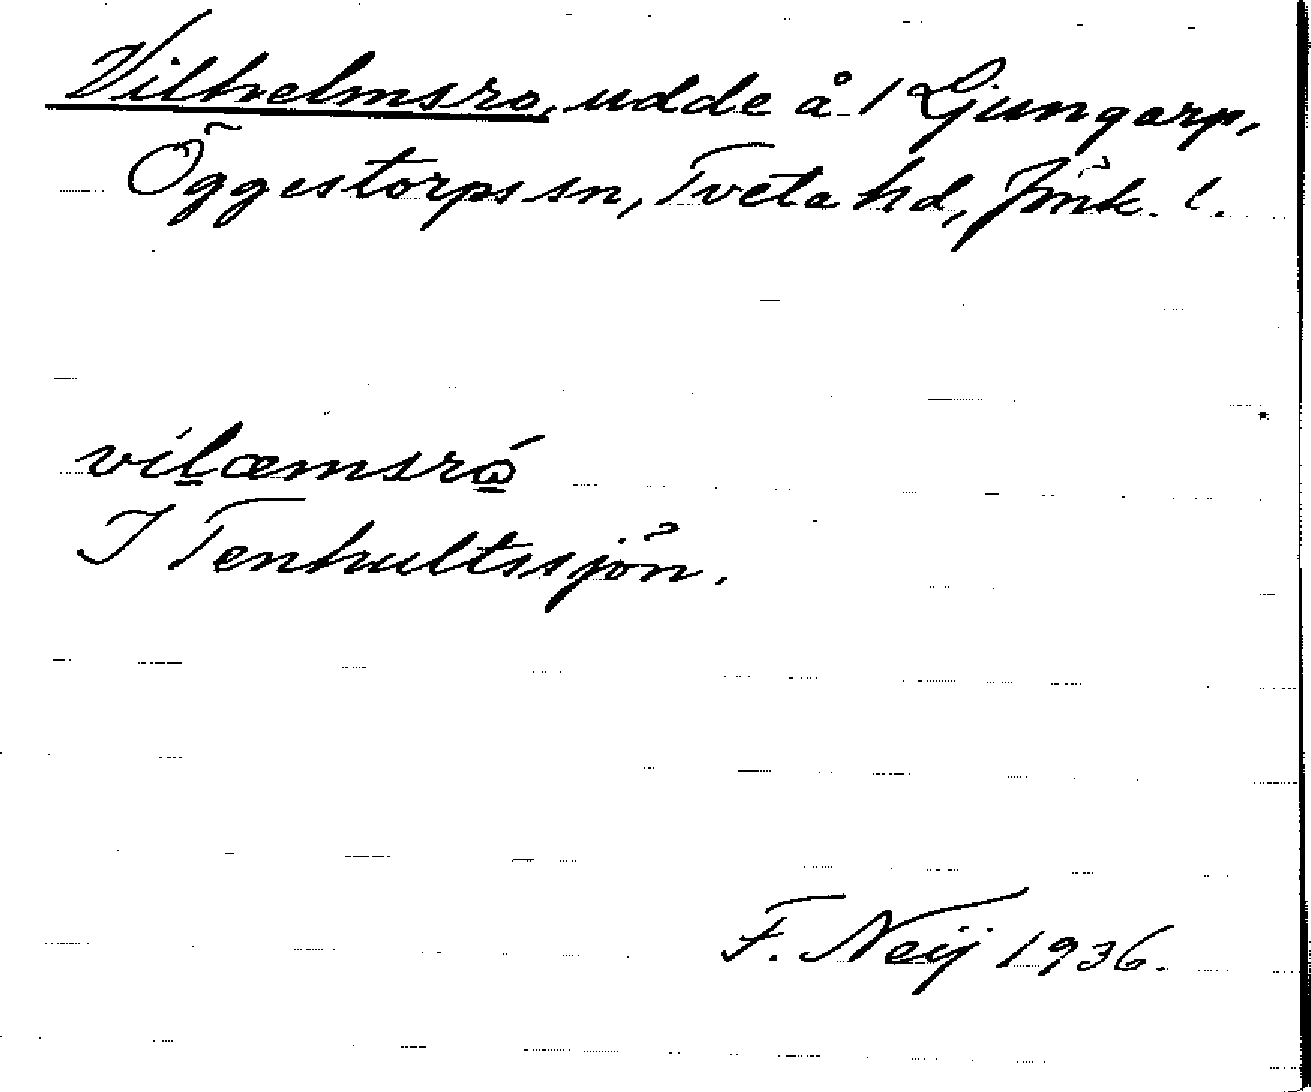 Vilhelmsro, udde å 1 Ljungarp,
Öggestorps sn, Tveta hd, Jönk. l.
vílæmsró
I Tenhultssjön.
F. Neij 1936.